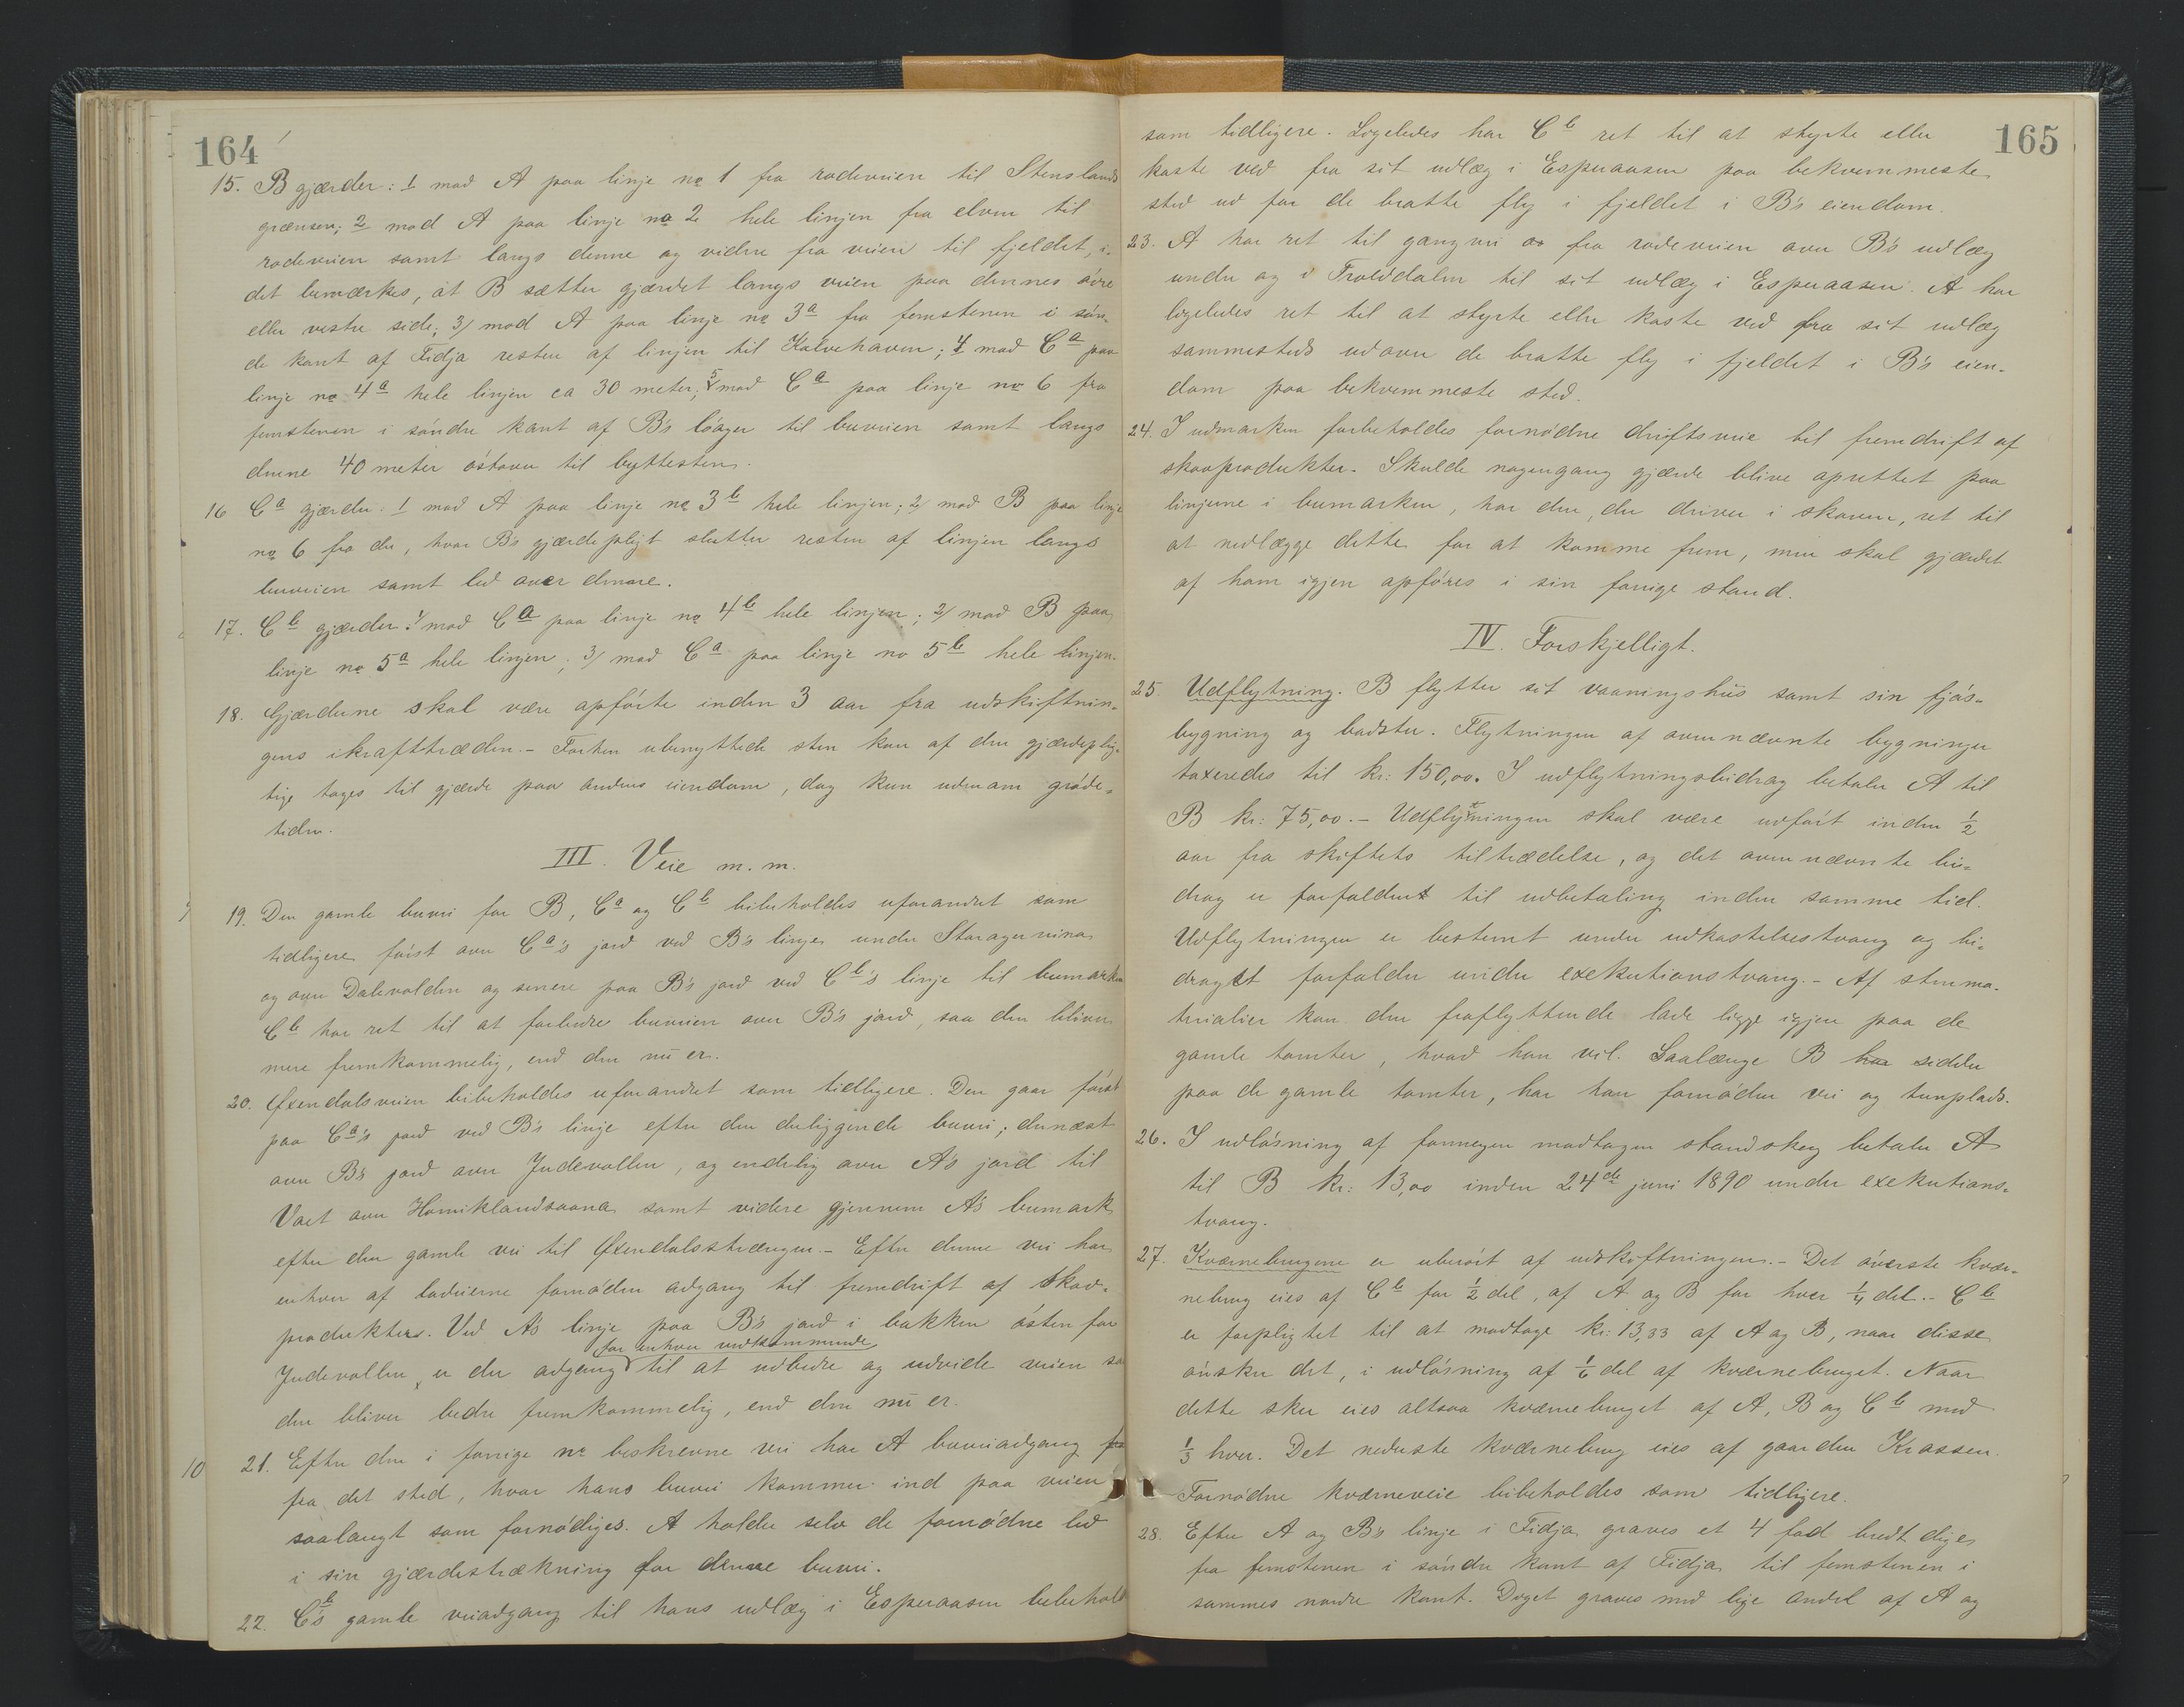 164
15. B gjærder: 1 mod A paa linje no 1 fra rodeveien til Stenslands
grænsen; 2 mod A paa linje no 2 hele linjen fra elven til
rodeveien samt langs denne og videre fra veien til fjeldet, i-
det bemærkes, at B sætter gjærdet langs veien paa dennes øvre
eller vestre side; 3/ mod A paa linje no 3a fra femstenen i søn-
de kant af Fidja resten af linjen til Kalvehaven; 4 mod Ca paa
linje no 4a hele linjen ca 30 meter; 5 mod Ca paa linje no 6 fra
femstenen i søndre kant af B's løager til buveien samt langs
denne 40 meter østover til byttesten.
16 Ca gjærder: 1 mod A paa linje no 3b hele linjen; 2/ mod B paa linje
no 6 fra der, hvor B's gjærdepligt slutter resten af linjen langs
buveien samt led over denne.
17. Cb gjærder 1/ mod Ca paa linje no 4b hele linjen; 2/ mod B paa
linje no 5a hele linjen; 3/ mod Ca paa linje no 5b hele linjen.
18. Gjærderne skal være opførte inden 3 aar fra udskiftnin-
gens ikrafttræden. - Forhen ubenyttede sten kan af den gjærdeplig-
tige tages til gjærde paa andens eiendom, dog kun udenom grøde-
tiden.
III. Veie m. m.
19. Den gamle buvei for B, Ca og Cb bibeholdes uforandret som
tidligere først over Ca's jord ved B's linje under Storagernina
og over Dalevolden og senere paa B's jord ved Cb's linje til bumarken
Cb har ret til at forbedre buveien over B's jord, saa den bliver
mere fremkommelig, end den nu er.
20. Øxendalsveien bibeholdes uforandret som tidligere. Den gaar først
paa Ca's jord ved B's linje efter den derliggende buvei; dernæst
over B's jord over Indevollen, og endelig over A's jord til
Vaet over Homiklandsaana samt videre gjennem A's bumark
efter den gamle vei til Øxendalsstrængen. - Efter denne vei har
enhver af lodeierne fornøden adgang til fremdrift af skov-
produkter. Ved A's linje paa B's jord i bakken østen for
for enhver vedkommende
Indevollen er der adgang til at udbedre og udvide veien saa
den bliver bedre fremkommelig, end den nu er.
10 21. Efter den i forrige nr beskrevne vei har A buveiadgang fra
fra det sted, hvor hans buvei kommer ind paa veien
saalangt som fornødiges. A holder selv de fornødne led
i sin gjærdestrækning for denne buvei.
22. Cb's gamle veiadgang til hans udlæg i Esperaasen bibeholdes
165
som tidligere. Ligeledes har Cb ret til at styrte eller
kaste ved fra sit udlæg i Esperaasen paa bekvemmeste
sted ud for de bratte fly i fjeldet i B's eiendom.
23. A har ret til gangvei fra rodeveien over B's udlæg
under og i Trolddalen til sit udlæg i Esperaasen. A har
ligeledes ret til at styrte eller kaste ved fra sit udlæg
sammesteds udover de bratte fly i fjeldet i B's eien-
dom paa bekvemmeste sted.
24. I udmarken forbeholdes fornødne driftsveie til fremdrift af
skovprodukter. Skulde nogengang gjærde blive oprettet paa
linjerne i bumarken, har den, der driver i skoven, ret til
at nedlægge dette for at komme frem, men skal gjærdet
af ham igjen opføres i sin forrige stand.
IV. Forskjelligt.
25. Udflytning. B flytter sit vaaningshus samt sin fjøs-
bygning og badstu. Flytningen af ovennævnte bygninger
taxeredes til kr: 150,00. I udflytningsbidrag betaler A til
B kr: 75,00. - Udflytningen skal være udført inden 1/2
aar fra skiftets tiltrædelse, og det ovennævnte bi-
drag er forfaldent til udbetaling inden samme tid.
Udflytningen er bestemt under udkastelsestvang og bi-
draget forfalder under exekutionstvang. - Af stenma-
terialier kan den fraflyttende lade ligge igjen paa de
gamle tomter, hvad han vil. Saalænge B har sidder
paa de gamle tomter, har han fornøden vei og tunplads.
26. I udløsning af formegen modtagen standskog betaler A
til B kr: 13,00 inden 24de juni 1890 under exekutions-
tvang.
27. Kværnebrugene er uberørt af udskiftningen. - Det øverste kvær-
nebrug eies af Cb for 1/2 del, af A og B for hver 1/4 del. - Cb
er forpligtet til at modtage kr: 13,33 af A og B, naar disse
ønsker det, i udløsning af 1/6 del af kværnebruget. Naar
dette sker eies altsaa kværnebruget af A, B og Cb med
1/3 hver. Det nederste kværnebrug eies af gaarden Krossen.
Fornødne kværneveie bibeholdes som tidligere.
28. Efter A og B's linje i Fidja graves et 4 fod bredt dige
fra femstenen i søndre kant af Fidja til femstenen i
sammes nordre kant. Diget graves med lige andel af A og